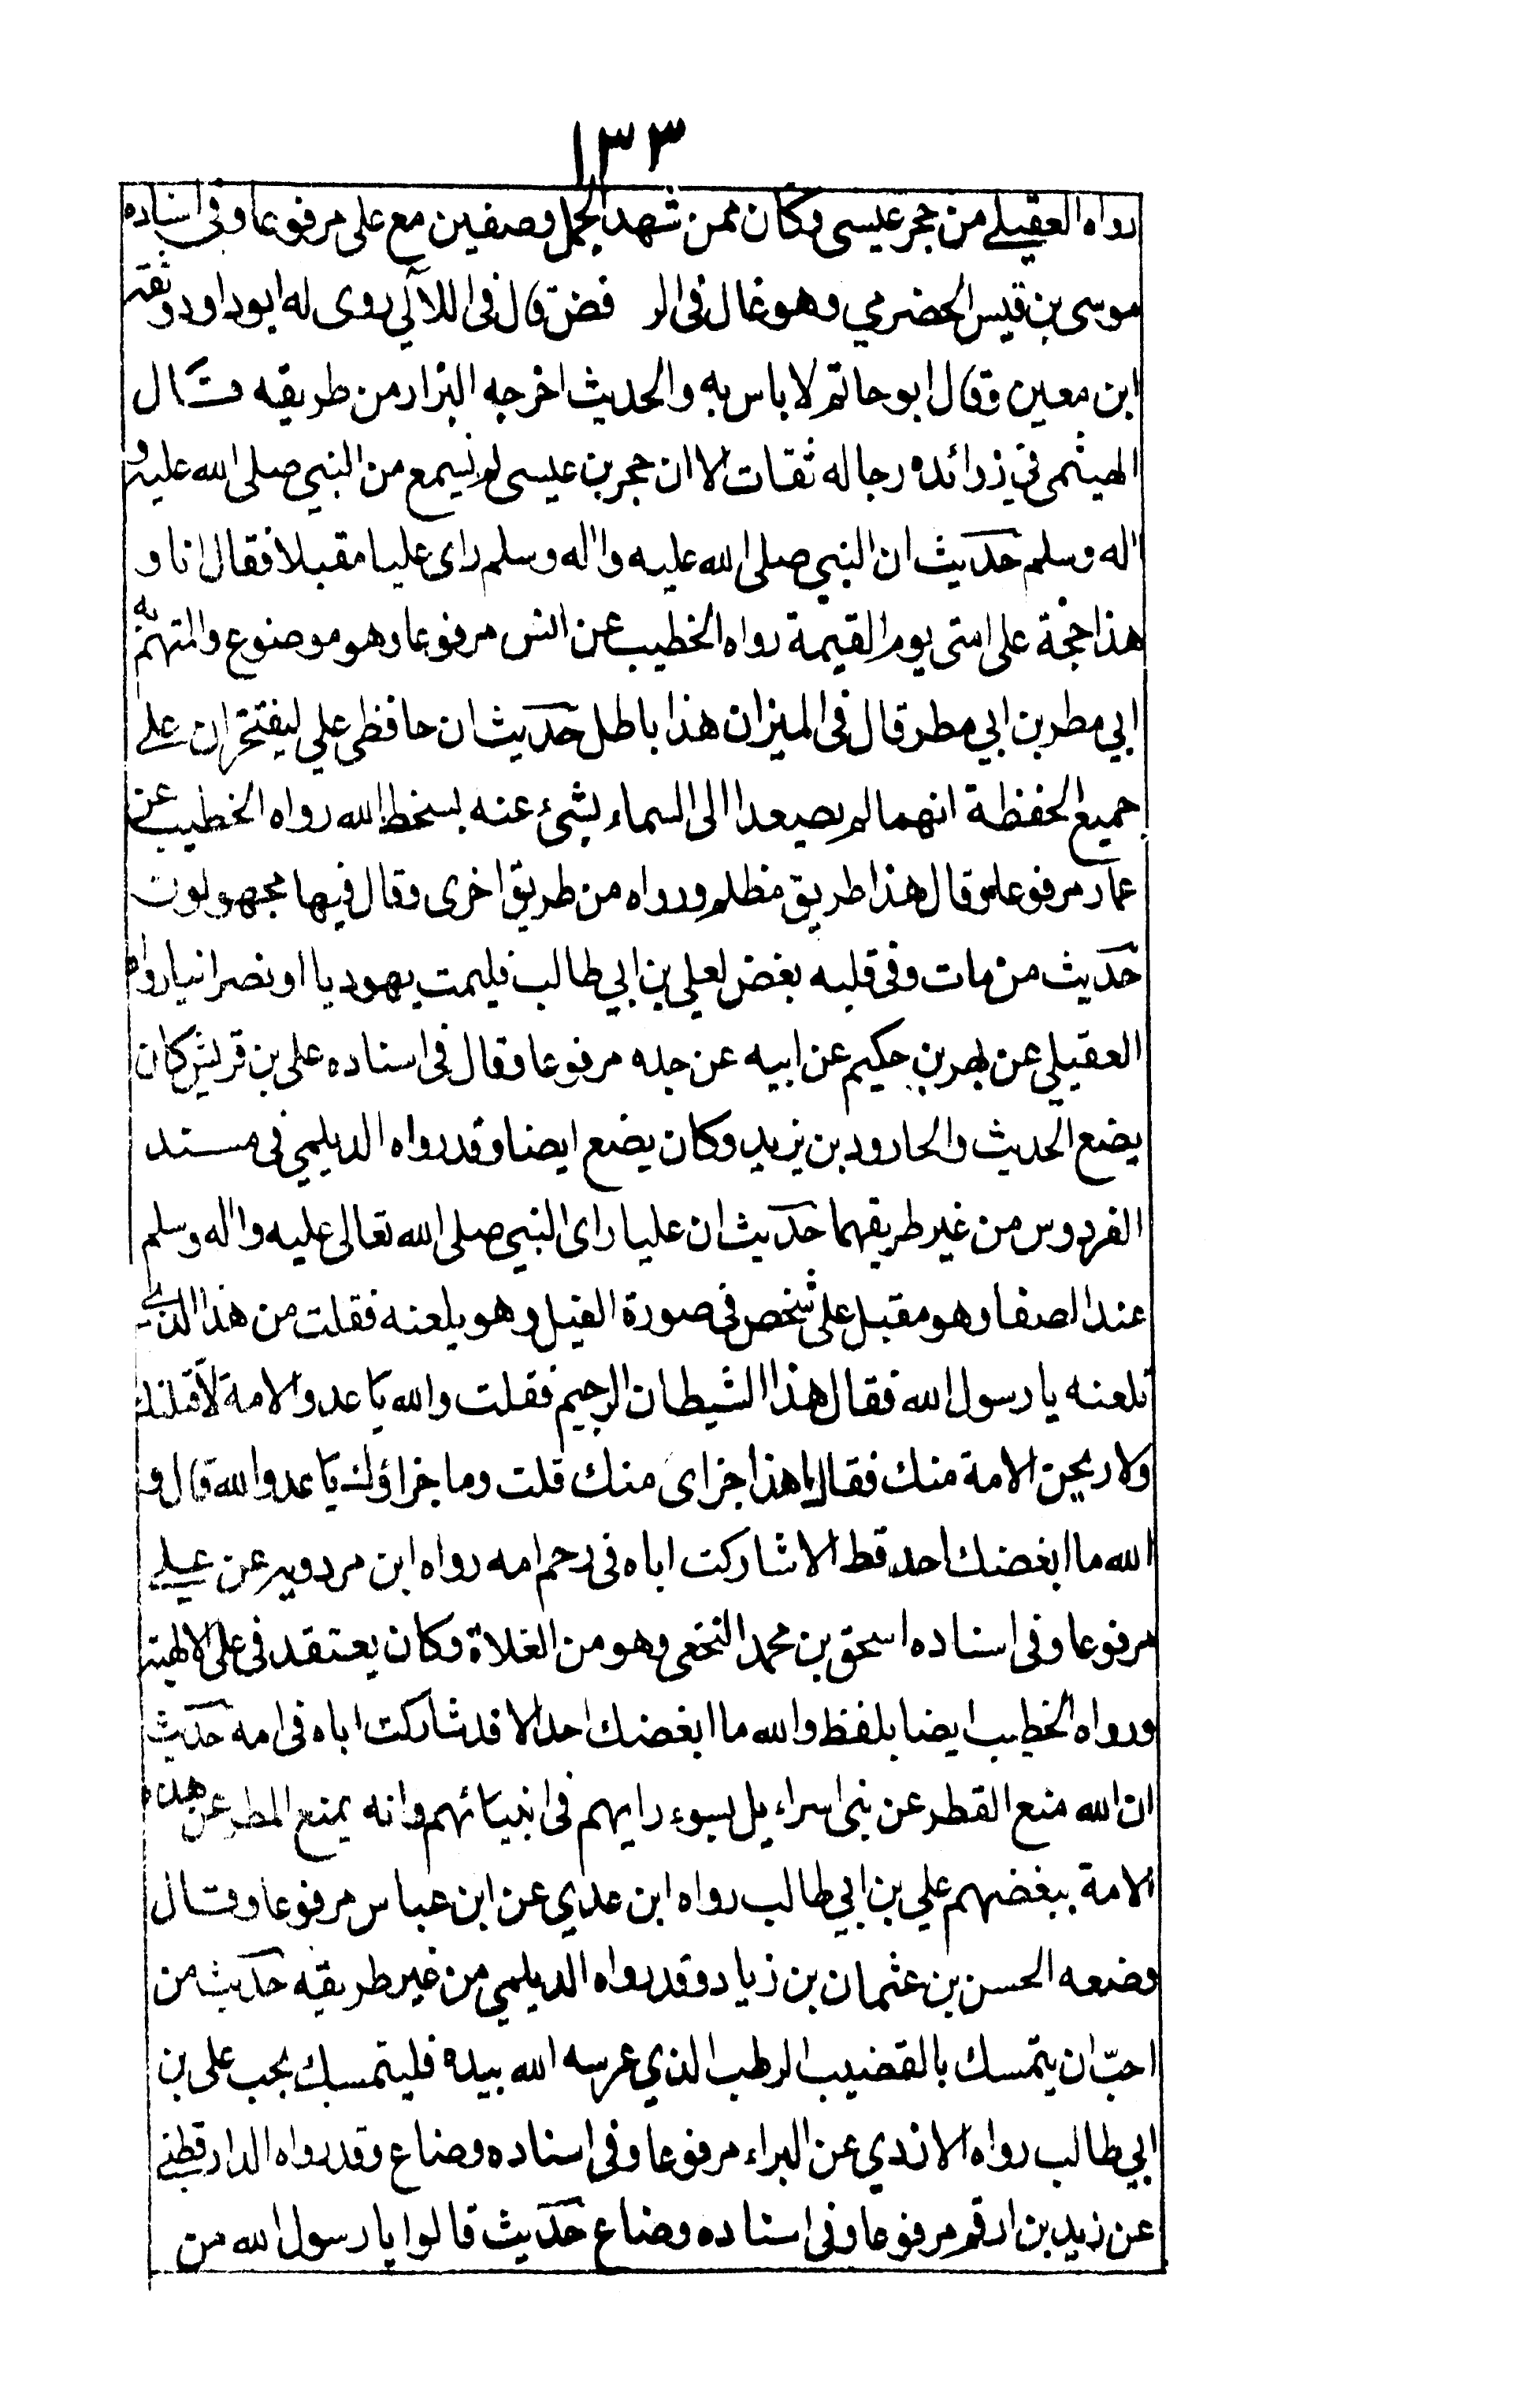 ١٣٣
رواه العقيلے من حجر عيسى وكان ممن شهد الجمل وصفين مع على مرفوعا وفى اسناده
موسى بن قيس الحضرمي وهو غال فى الر فض قال فى اللآلي روى له ابو داود وثقه
ابن معين وقال ابو حاتم لا باس به والحديث اخرجه البزار من طريقه قال
الهيثمى في زوائده رجاله ثقات الا ان حجر بن عيسى لم يسمع من النبي صلى الله عليه و
اله وسلم حديث ان النبي صلى الله عليه واله وسلم راى عليا مقبلا فقال انا و
هذا حجة على امتى يوم القيمة رواه الخطيب عن انس مرفوعا وهو موضوع والمتهم به
ابي مطر بن ابي مطر قال فى الميزان هذا باطل حديث ان حافظى علي ليفتخران علے
جميع الحفظة انهما لم يصعدا الى السماء بشئ عنه يسخط الله رواه الخطيب عن
عمار مرفوعا وقال هذا طريق مظلم ورواه من طريق اخرى وقال فيها مجهولون
حديث من مات وفى قلبه بغض لعلي بن ابي طالب فليمت يهوديا او نصرانيا رواه
العقيلي عن بهز بن حكيم عن ابيه عن جده مرفوعا وقال فى اسناده على بن قريش كان
يضع الحديث والجارود بن يزيد وكان يضع ايضا وقد رواه الديلمي فى مسند
الفردوس من غير طريقهما حديث ان عليا راى النبي صلى الله تعالى عليه واله وسلم
عند الصفا وهو مقبل على شخص فى صورة الفيل وهو يلعنه فقلت من هذا الذے
تلعنه يا رسول الله فقال هذا الشيطان الرجيم فقلت والله يا عدو الامة لاقتلنك
ولا ريحن الامة منك فقال ما هذا جزاى منك قلت وما جزاؤك يا عدو الله قال و
الله ما ابغضك احد قط الا شاركت اباه فى رحم امه رواه ابن مردويه عن علے
مرفوعا وفى اسناده اسحق بن محمد النخعى وهو من الغلاة وكان يعتقد فى على الالهية
ورواه الخطيب ايضا بلفظ والله ما ابغضك احد الا قد شاركت اباه فى امه حديث
ان الله منع القطر عن بنى اسراءيل بسوء رايهم فى انبيائهم وانه يمنع المطر عن هذه
الامة ببغضهم علي بن ابي طالب رواه ابن عدي عن ابن عباس مرفوعا وقال
وضعه الحسن بن عثمان بن زياد وقد رواه الديلمي من غير طريقه حديث من
احبّ ان يتمسك بالقضيب الرطب الذي غرسه الله بيده فليتمسك بحب على بن
ابي طالب رواه الازدي عن البراء مرفوعا وفى اسناده وضاع وقد رواه الدارقطنے
عن زيد بن ارقم مرفوعا وفى اسناده وضاع حديث قالوا يا رسول الله من